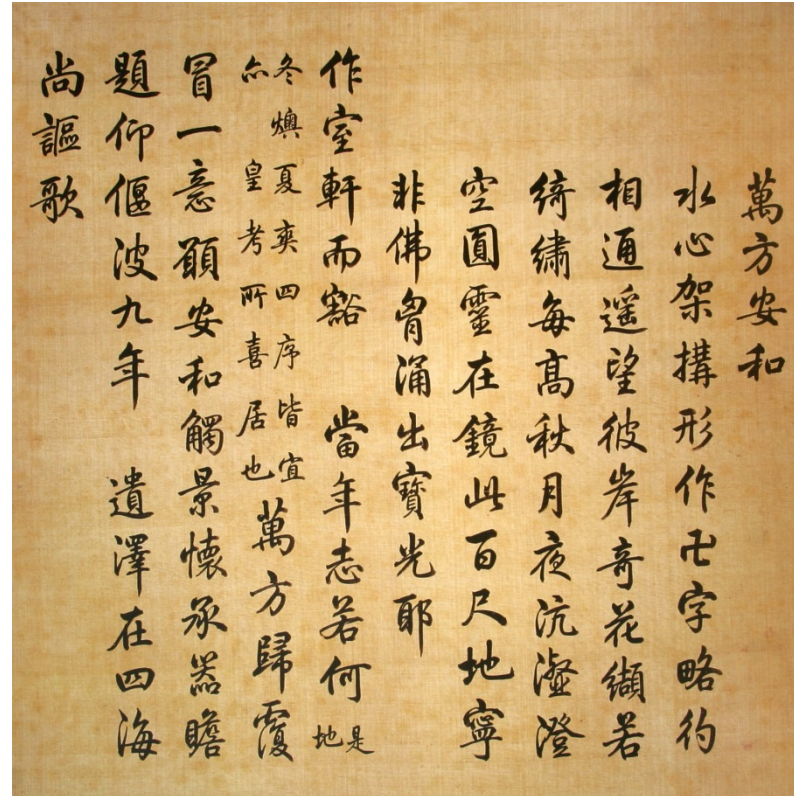 萬方安和
水心架搆形作卍字略彴
相通遥望彼岸竒花纈若
綺繡每髙秋月夜沆瀣澄
空圓靈在鏡此百尺地寧
非佛胷涌出寶光耶
作室軒而豁 當年志若何 是地
冬燠夏爽四序皆宜亦 皇考所喜居也 萬方歸覆
冒一意願安和觸景懷承器瞻
題仰偃波九年 遺澤在四海
尚謳歌